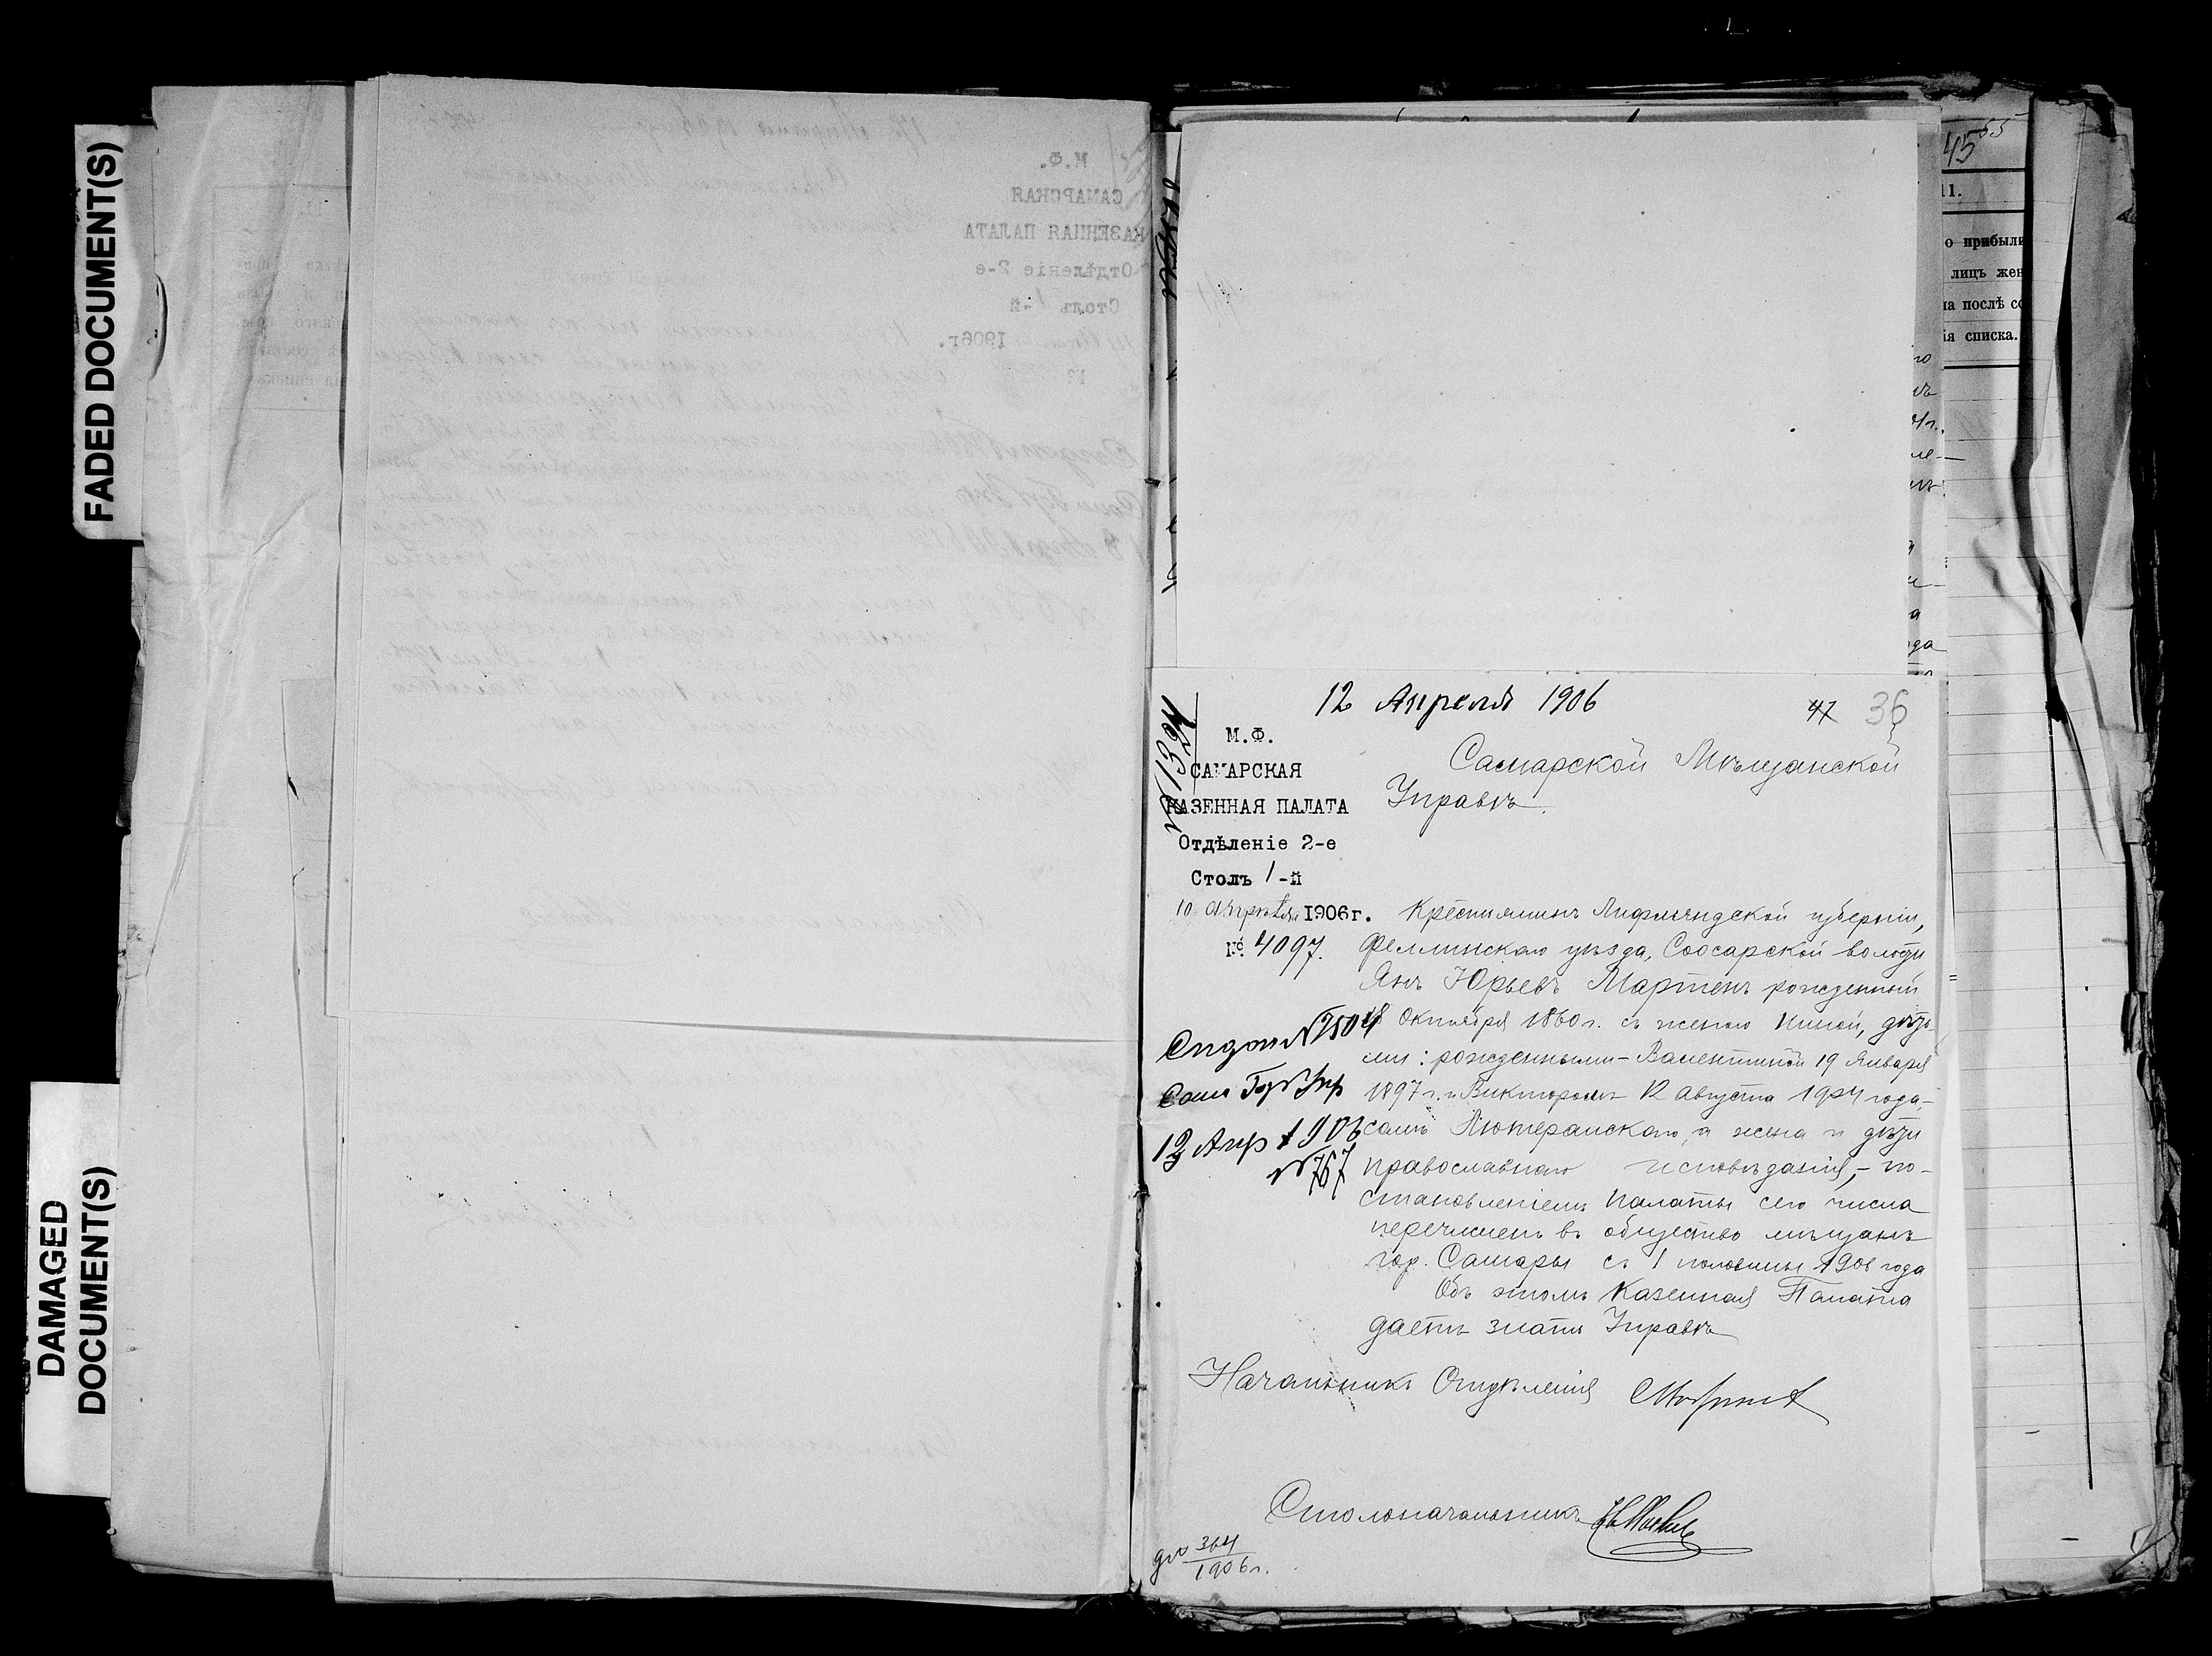 FADED DOCUMENT(S)
DAMAGED
DOCUMENT(S)
45 55
11.
о прибыли
лицъ жен
на послѣ со
ія списка.
12 Апрѣля 1906
47 36
М.Ф.
САМАРСКАЯ
КАЗЕННАЯ ПАЛАТА
Отдѣленіе 2-е
Столъ 1-й
10 Апрѣля 1906г.
№ 4097.
Самарской Мѣщанской
Управѣ.
Крестьянинъ Лифляндской губерніи,
Феллинскаго уѣзда, Соосарской волости
Янъ Юрьевъ Мартенъ рожденный
18 Октября 1860 г. съ женою Ниной, дѣть-
ми: рожденными - Валентиной 19 Января
1897 г. и Викторомъ 12 Августа 1904 года,-
самъ Лютеранскаго, а жена и дѣти
православнаго исповѣданія, - по-
становленіемъ Палаты сего числа
перечисленъ въ общество мѣщанъ
гор. Самары съ 1 половины 1906 года
Объ этомъ Казенная Палата
даетъ знать Управѣ
Сам Гор Упр
12 Апр 1906
№ 767
Начальникъ Отдѣленія
Столоначальникъ
364
1906 г.